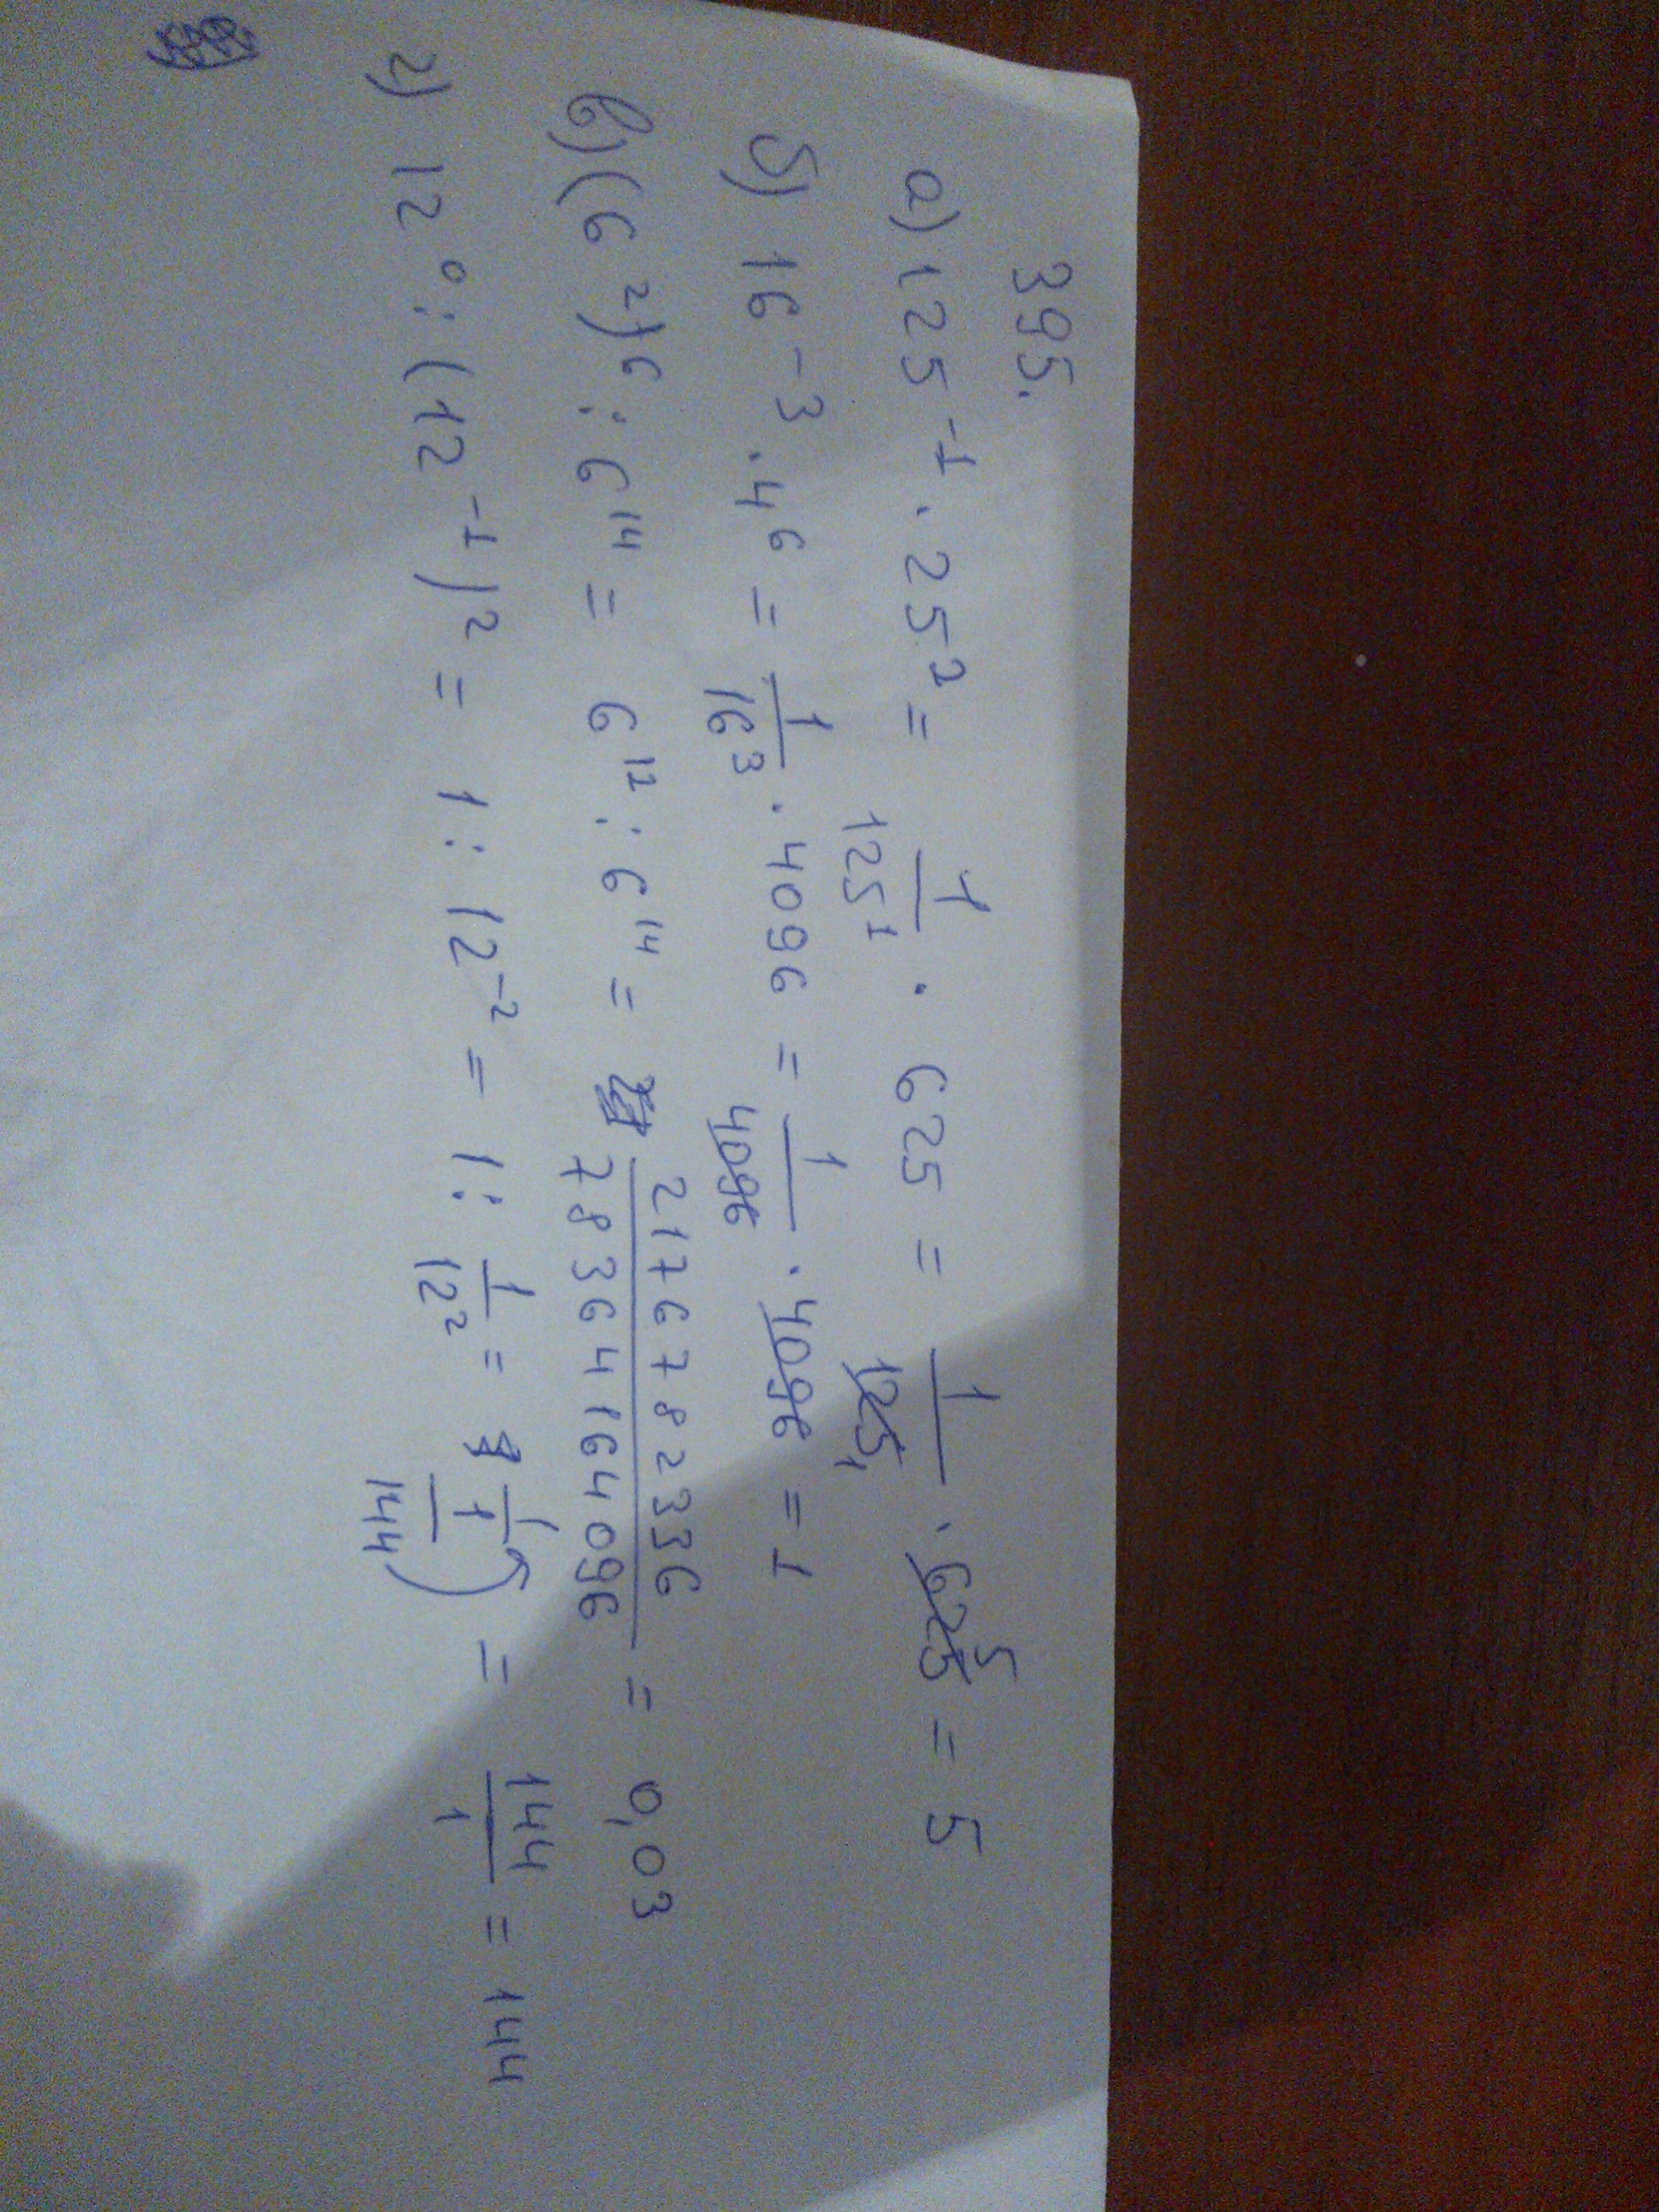 395.
а) 125⁻¹ · 25² = 1/125¹ · 625 = 1/125₁ · 625⁵ = 5
б) 16⁻³ · 4⁶ = 1/16³ · 4096 = 1/4096 · 4096 = 1
в) (6²)⁶ : 6¹⁴ = 6¹² : 6¹⁴ = 2176782336/78364164096 = 0,03
г) 12⁰ : (12⁻¹)² = 1 : 12⁻² = 1 : 1/12² = 1/1/144 = 144/1 = 144